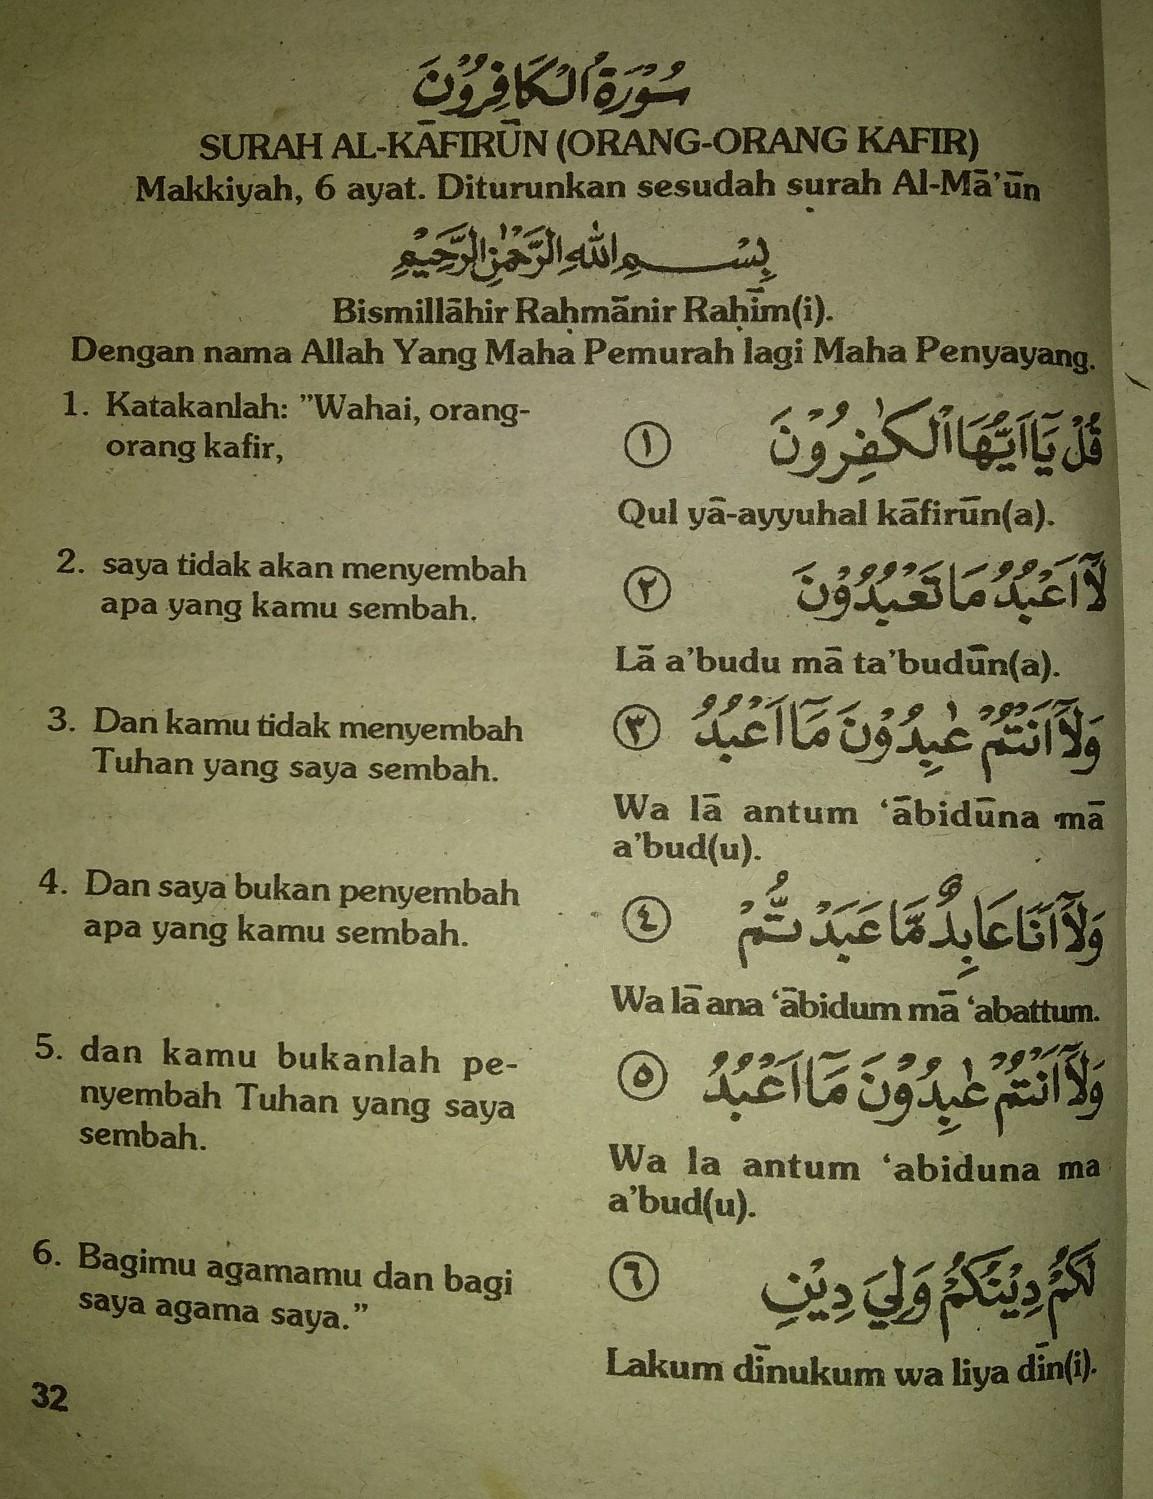 سُوْرَةُ الْكَافِرُوْنَ
SURAH AL-KĀFIRŪN (ORANG-ORANG KAFIR)
Makkiyah, 6 ayat. Diturunkan sesudah surah Al-Mā’ūn
بِسْمِ اللّٰهِ الرَّحْمٰنِ الرَّحِيْمِ
Bismillāhir Raḥmānir Raḥīm(i).
Dengan nama Allah Yang Maha Pemurah lagi Maha Penyayang.
1. Katakanlah: ”Wahai, orang-
orang kafir,
قُلْ يَآاَيُّهَا الْكٰفِرُوْنَ ١
Qul yā-ayyuhal kāfirūn(a).
2. saya tidak akan menyembah
apa yang kamu sembah.
لَآ اَعْبُدُ مَا تَعْبُدُوْنَ ٢
Lā a’budu mā ta’budūn(a).
3. Dan kamu tidak menyembah
Tuhan yang saya sembah.
وَلَآ اَنْتُمْ عٰبِدُوْنَ مَآ اَعْبُدُ ٣
Wa lā antum ‘ābidūna mā
a’bud(u).
4. Dan saya bukan penyembah
apa yang kamu sembah.
وَلَآ اَنَا عَابِدٌ مَّا عَبَدْتُّمْ ٤
Wa lā ana ‘ābidum mā ‘abattum.
5. dan kamu bukanlah pe-
nyembah Tuhan yang saya
sembah.
وَلَآ اَنْتُمْ عٰبِدُوْنَ مَآ اَعْبُدُ ٥
Wa la antum ‘abiduna ma
a’bud(u).
6. Bagimu agamamu dan bagi
saya agama saya.”
لَكُمْ دِيْنُكُمْ وَلِيَ دِيْنِ ٦
Lakum dīnukum wa liya dīn(i).
32